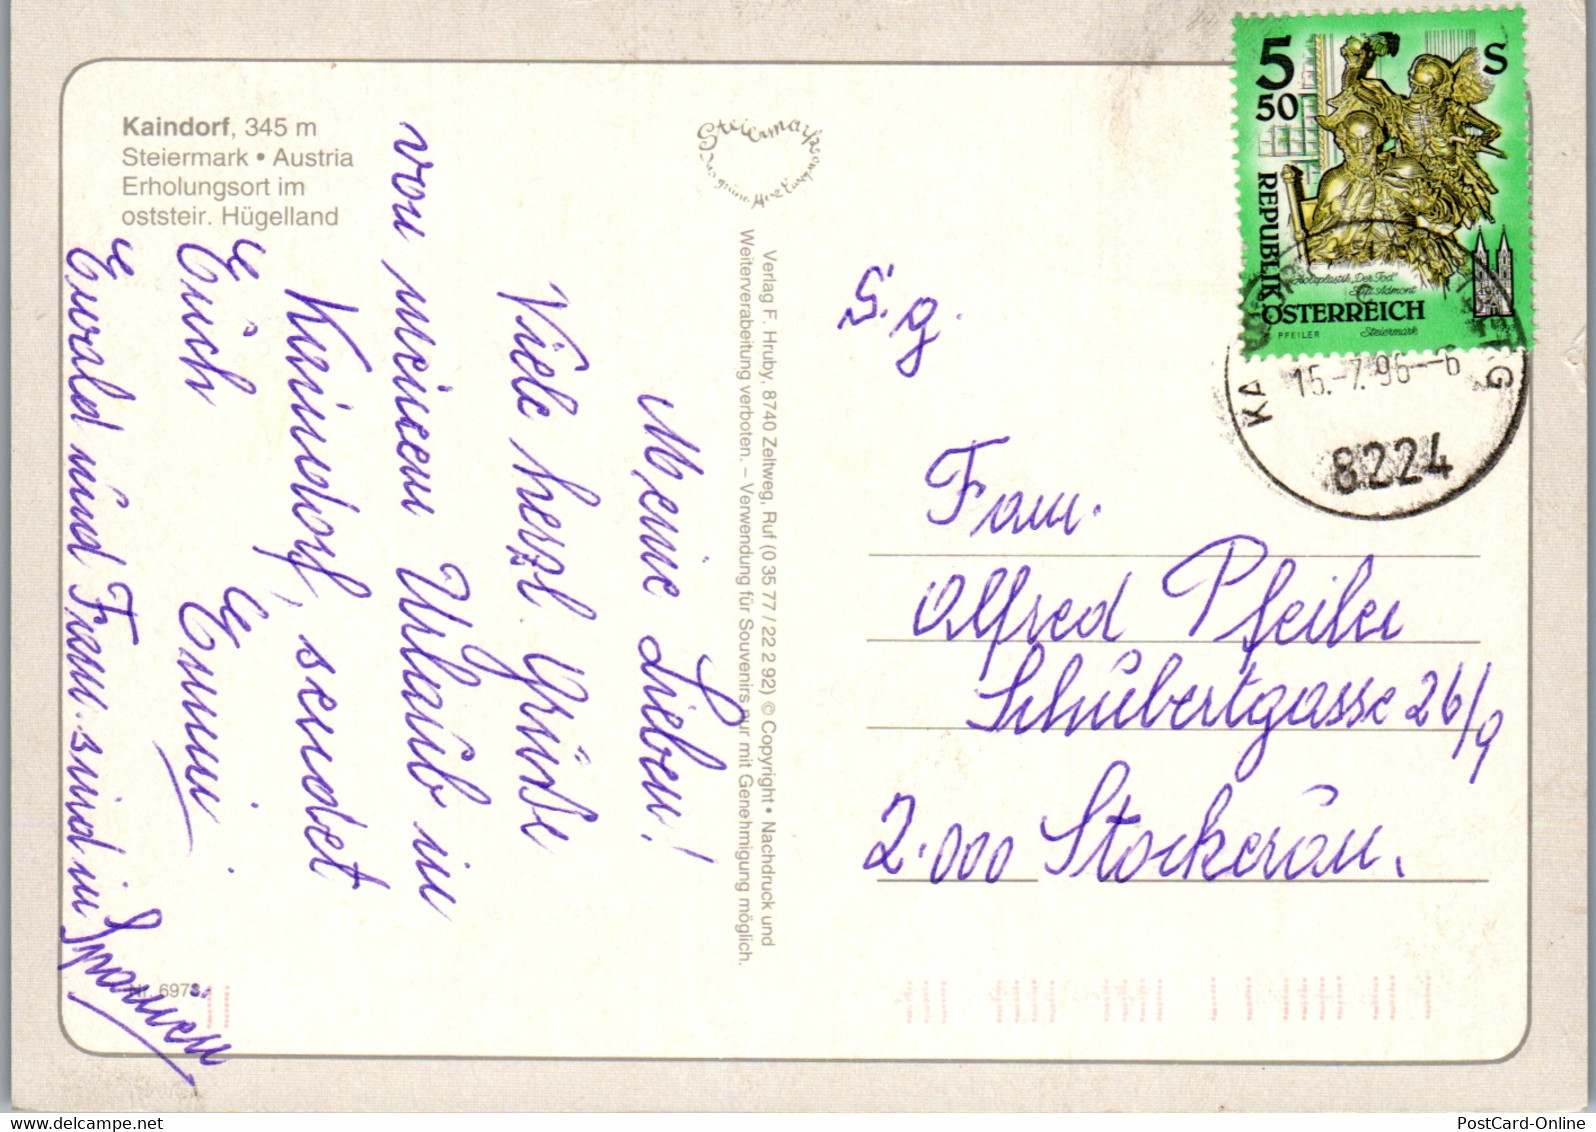 Kaindorf, 345 m
Steiermark • Austria
Erholungsort im
oststeir. Hügelland
Meine Lieben!
Viele herzl. Grüße
von meinem Urlaub in
Kaindorf, sendet
Euch Emmi
Ewald und Fam. sind in
Spanien
Nr. 697
Steiermark
Verlag F. Hruby, 8740 Zeltweg, Ruf (0 35 77 / 22 2 92) © Copyright • Nachdruck und
Weiterverabeitung verboten. – Verwendung für Souvenirs nur mit Genehmigung möglich.
5 50 S
REPUBLIK
ÖSTERREICH
Holzplastik „Der Tod“
Stift Admont
PFEILER
Steiermark
15.-7.96--6
8224
S. g.
Fam.
Alfred Pfeiler
Schubertgasse 26/9
2.000 Stockerau.
PostCard-Online